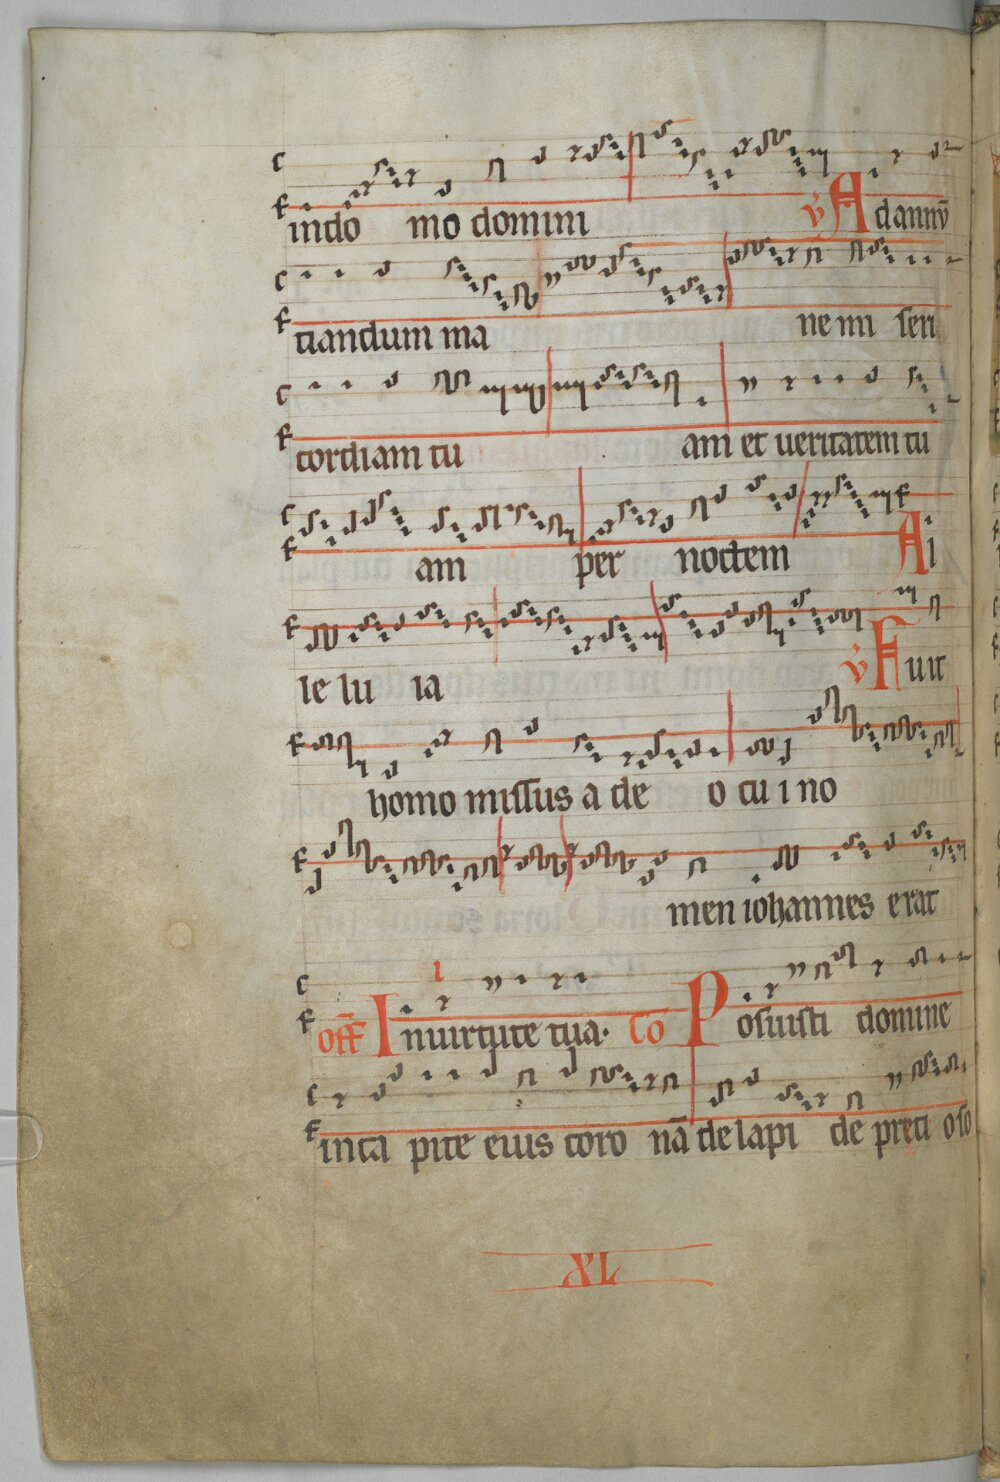 indo mo domini ℣ Adannū
tiandum ma ne mi seri
cordiam tu am et ueritatem tu
am per noctem Al
le lu ia ℣ Fuit
homo missus a de o cu i no
men iohannes erat
off̄ Inuirtute tua. Cō Posuisti domine
inca pite eius coro nā de lapi de preti oso
XL